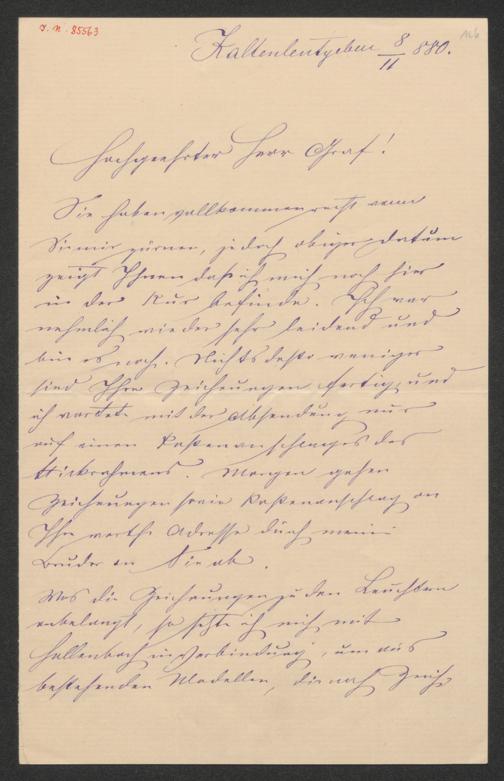 I. N. 85563
126
Kaltenleutgeben 8/11 880.
Hochgeehrter Herr Graf!
Sie haben vollkommen recht wenn
Sie mir zürnen, jedoch obiges datum
zeigt Ihnen daß ich mich noch hier
in der Kur befinde. Ich war
nehmlich wieder sehr leidend und
bin es noch. Nichts desto weniger
sind Ihre Zeichnungen fertig, und
ich wartete mit der Absendung nur
auf einen Kostenanschlages des
Stickrahmens. Morgen gehen
Zeichnungen sowie Kostenanschlag an
Ihre werthe Adresse durch meinen
Bruder an Sie ab.
Was die Zeichnungen zu den Leuchtern
anbelangt, so setzte ich mich mit
Hollenbach in Verbindung, um aus
bestehenden Modellen, die nach Zeich-